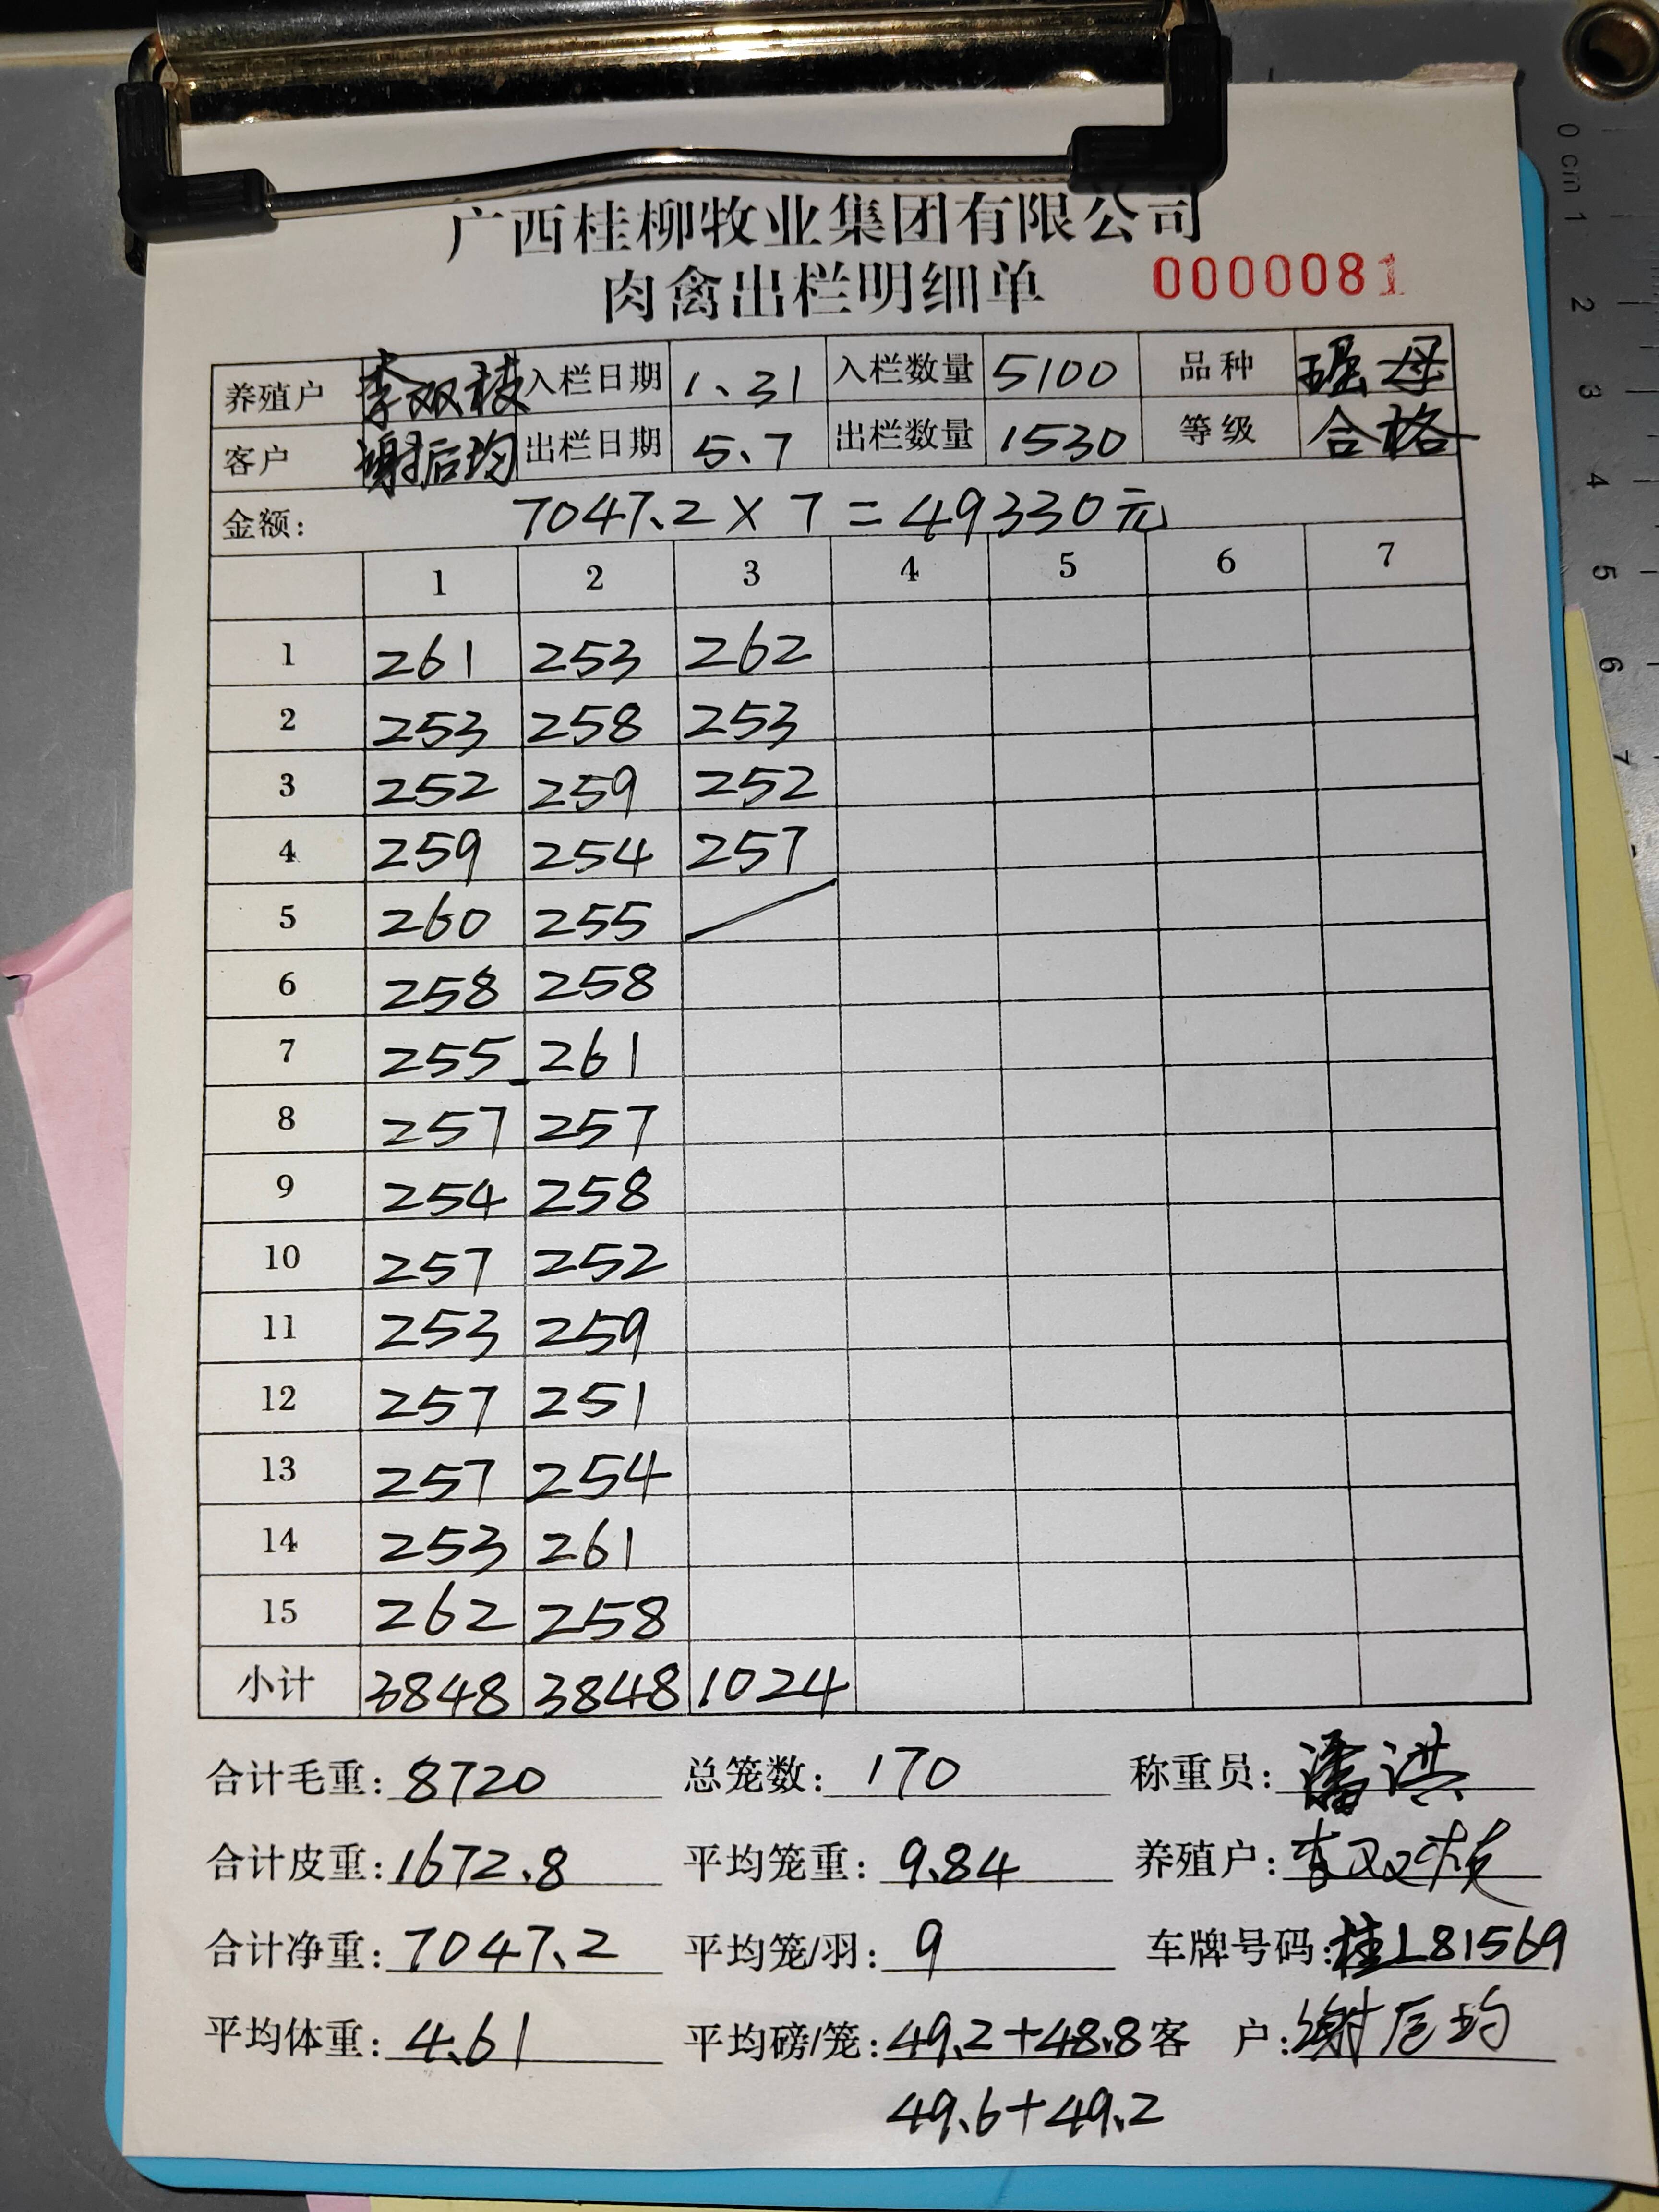 广西桂柳牧业集团有限公司
肉禽出栏明细单 0000081
养殖户 李双枝 入栏日期 1.31 入栏数量 5100 品种 瑶母
客户 谢后均 出栏日期 5.7 出栏数量 1530 等级 合格
金额: 7047.2×7=49330元
1 2 3 4 5 6 7
1 261 253 262
2 253 258 253
3 252 259 252
4 259 254 257
5 260 255
6 258 258
7 255 261
8 257 257
9 254 258
10 257 252
11 253 259
12 257 251
13 257 254
14 253 261
15 262 258
小计 3848 3848 1024
合计毛重: 8720 总笼数: 170 称重员: 潘洪
合计皮重: 1672.8 平均笼重: 9.84 养殖户: 李双枝
合计净重: 7047.2 平均笼/羽: 9 车牌号码: 桂L81569
平均体重: 4.61 平均磅/笼: 49.2+48.8 客 户: 谢后均
49.6+49.2
0 cm 1
2
3
4
5
6
7